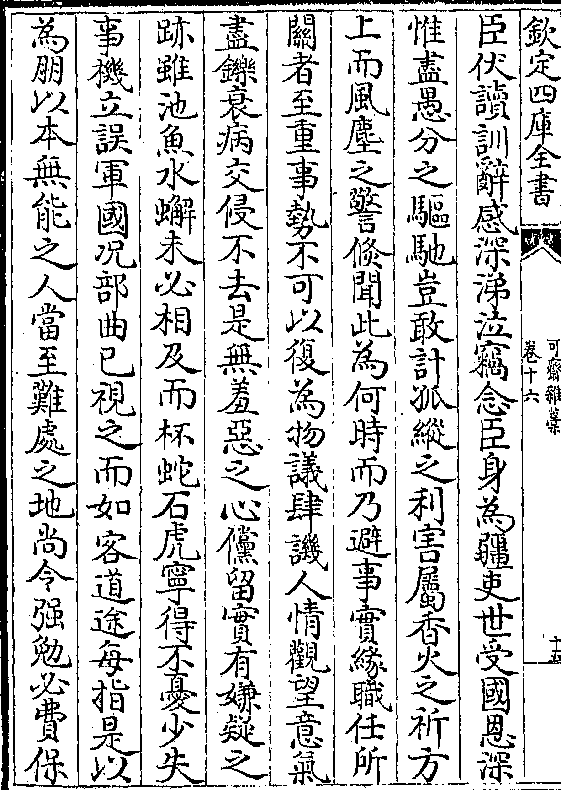 欽定四庫全書
可齋雜藁
卷十六
臣伏讀訓辭感深涕泣竊念臣身為疆吏世受國恩深
惟盡愚分之驅馳豈敢計孤縱之利害屬香火之祈方
上而風塵之警倐聞此為何時而乃避事實緣職任所
關者至重事勢不可以復為物議肆譏人情觀望意氣
盡鑠衰病交侵不去是無羞惡之心儻留實有嫌疑之
跡雖池魚水蠏未必相及而杯蛇石虎寧得不憂少失
事機立誤軍國況部曲已視之而如客道途每指是以
為朋以本無能之人當至難處之地尚令强勉必費保